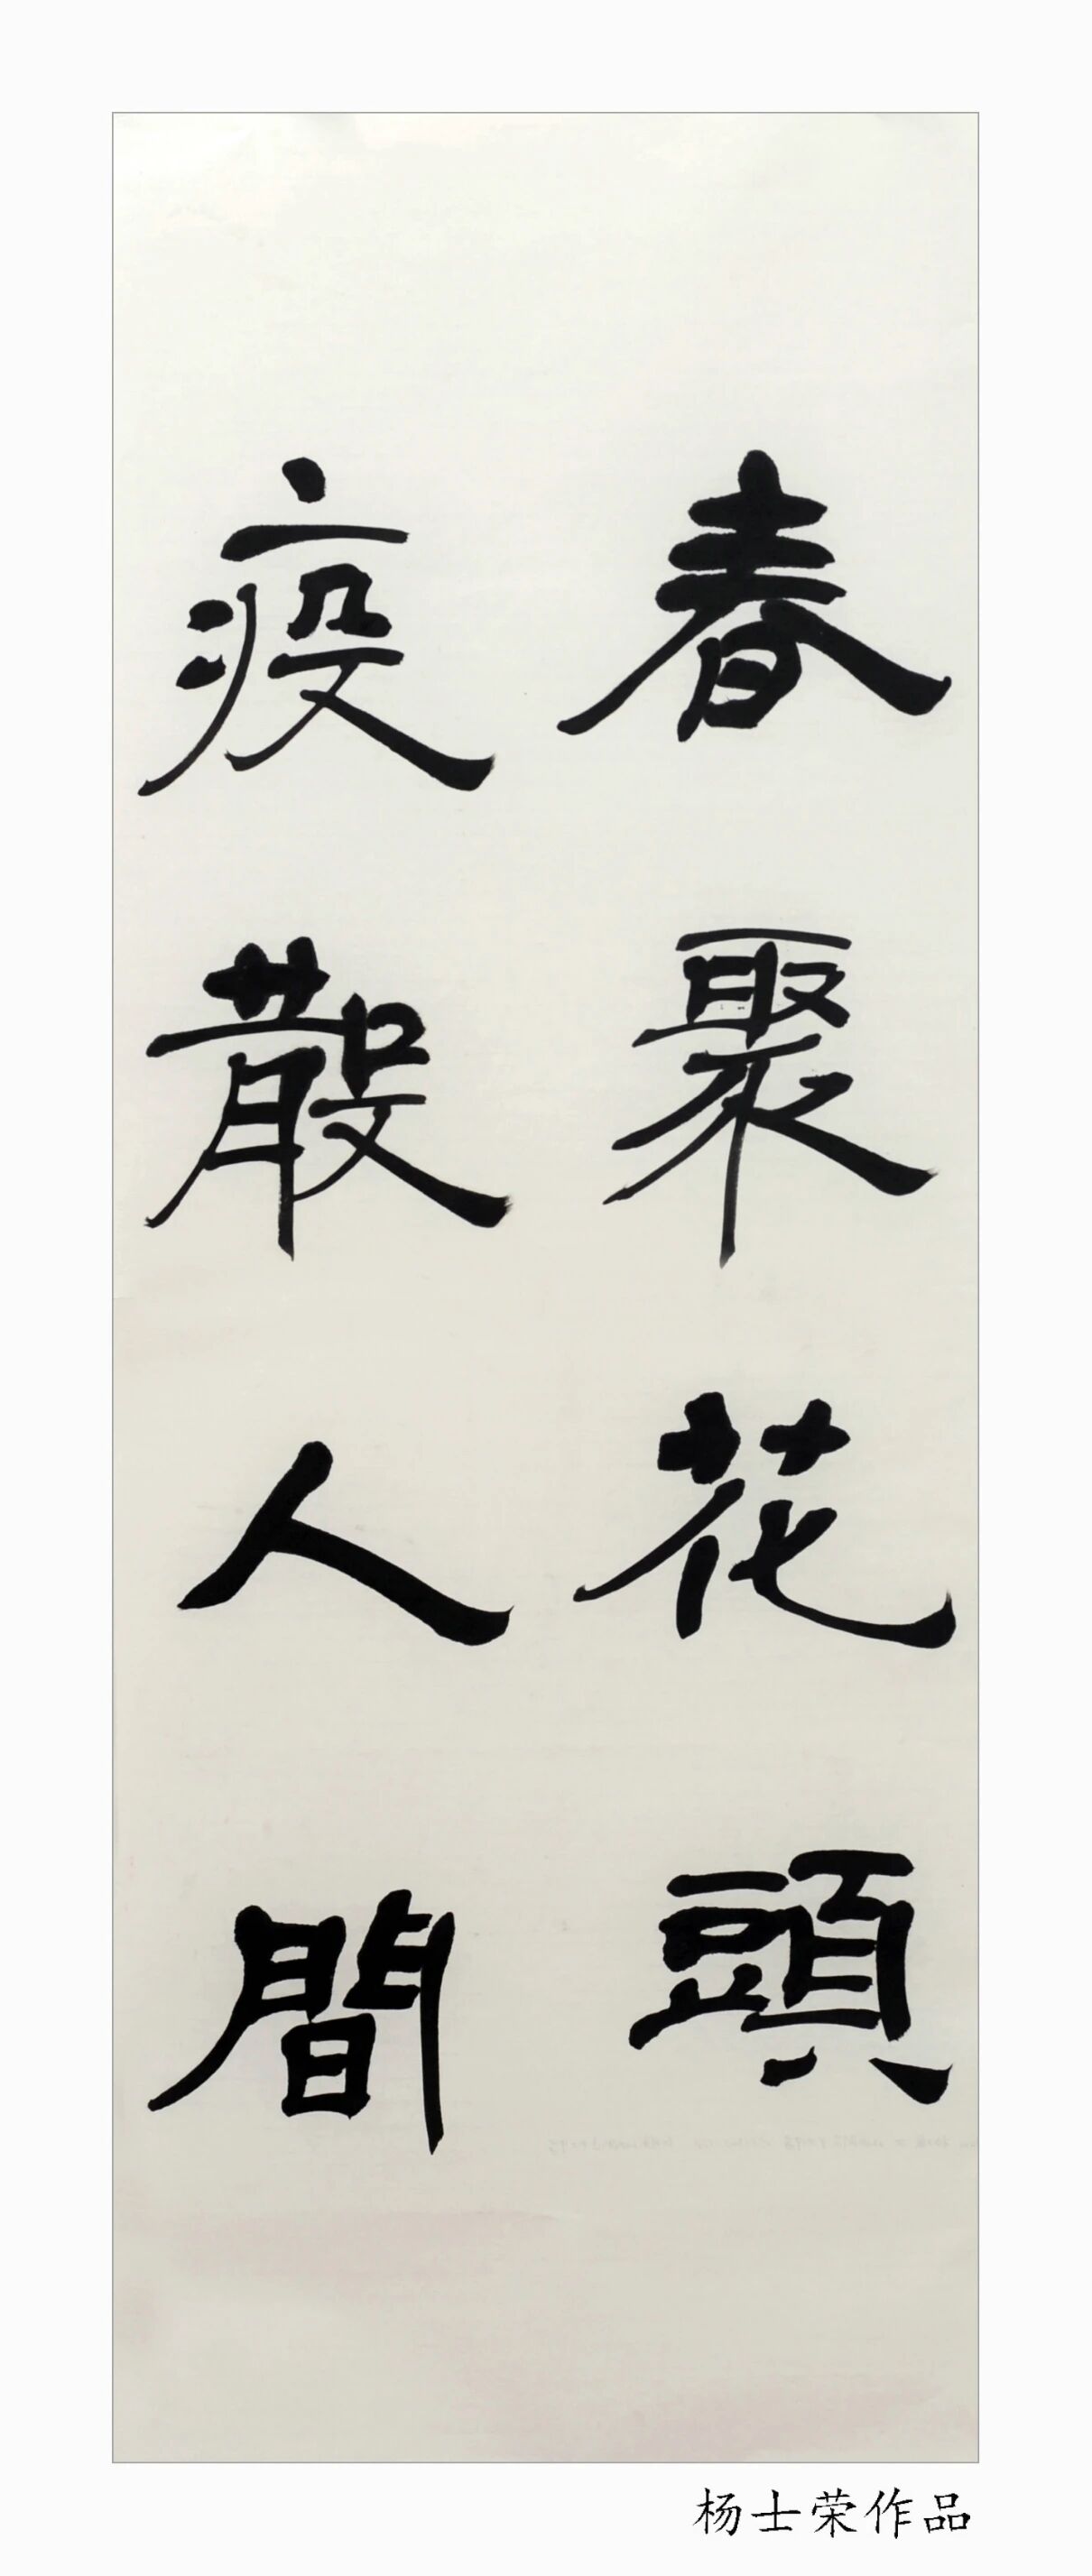 春聚花頭
疫散人間
杨士荣作品